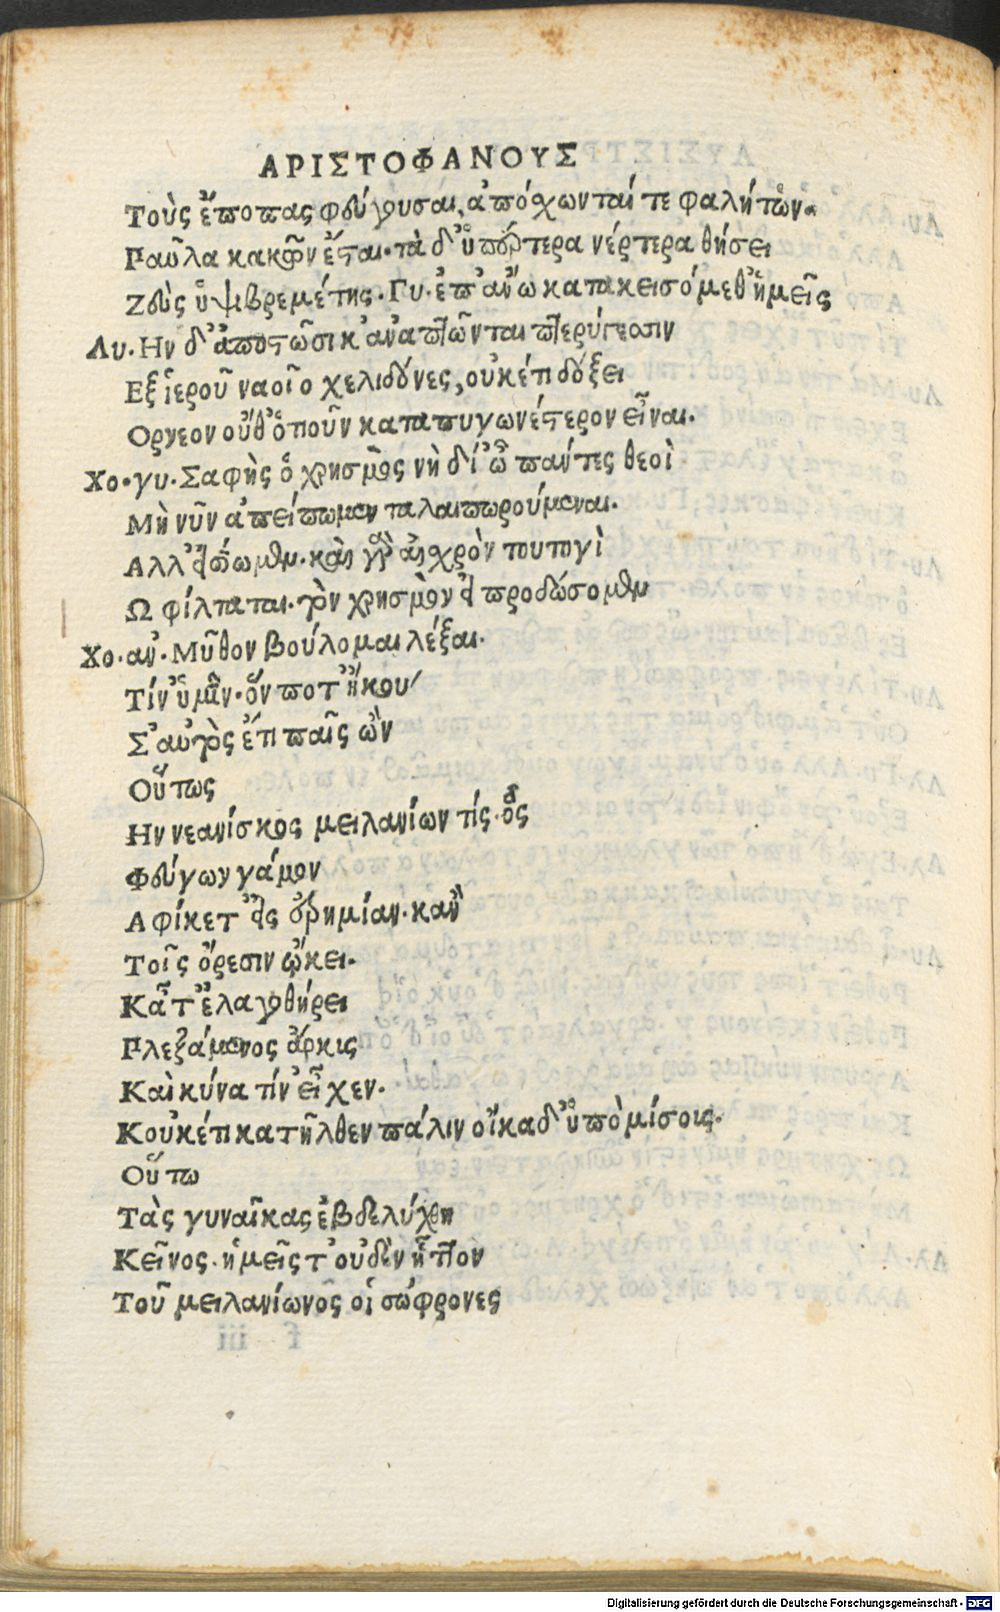 ΑΡΙΣΤΟΦΑΝΟΥΣ
Τοὺς ἔποπας φεύγουσαι, ἀπόσχωνταί τε φαλήτων.
Παῦλα κακῶν ἔσται. τὰ δ' ὑπέρτερα νέρτερα θήσει
Ζεὺς ὑψιβρεμέτης. Γυ. ἐπ' ἄνω κατακεισόμεθ' ἡμεῖς
Λυ. Ην δ' ἀποστῶσι κ' ἀναπτῶνται πτερύγεσσιν
Εξ ἱεροῦ ναοῖο χελιδόνες, οὐκέτι δόξει
Ορνεον οὐδ' ὁποῦν καταπυγωνέστερον εἶναι.
Χο. γυ. Σαφὴς ὁ χρησμὸς νὴ δί' ὦ πάντες θεοὶ
Μὴ νῦν ἀπείπωμεν ταλαιπωρούμεναι.
Αλλ' εἰσίωμεν. καὶ γὰρ αἰσχρὸν τουτογὶ
Ω φίλταται. τὸν χρησμὸν εἰ προδώσομεν
Χο. αν. Μῦθον βούλομαι λέξαι.
Τίν' ὑμῖν. ὅν ποτ' ἤκου
Σ' αὐτὸς ἔτι παῖς ὢν
Οὕτως
Ην νεανίσκος μειλανίων τίς. ὃς
Φεύγων γάμον
Αφίκετ' ἐς ἐρημίαν. κἀν
Τοῖς ὄρεσιν ᾤκει.
Κᾆτ' ἐλαγοθήρει
Πλεξάμενος ἄρκυς
Καὶ κύνα τίν' εἶχεν.
Κοὐκέτι κατῆλθεν πάλιν οἴκαδ' ὑπὸ μίσους.
Οὕτω
Τὰς γυναῖκας ἐβδελύχθη
Κεῖνος. ἡμεῖς τ' οὐδὲν ἧττον
Τοῦ μειλανίωνος οἱ σώφρονες
Digitalisierung gefördert durch die Deutsche Forschungsgemeinschaft - DFG